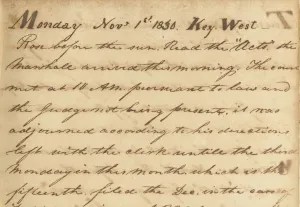 Monday Nov 1st. 1830. Key West
Rose before the sun. Read the "Acts", the
Marshall arrived this morning. The court
met at 10 A.M. pursuant to law and
the Judge not being present, it was
adjourned according to his directions
left with the clerk until the third
monday in this month which is the
fifteenth filed the in the case